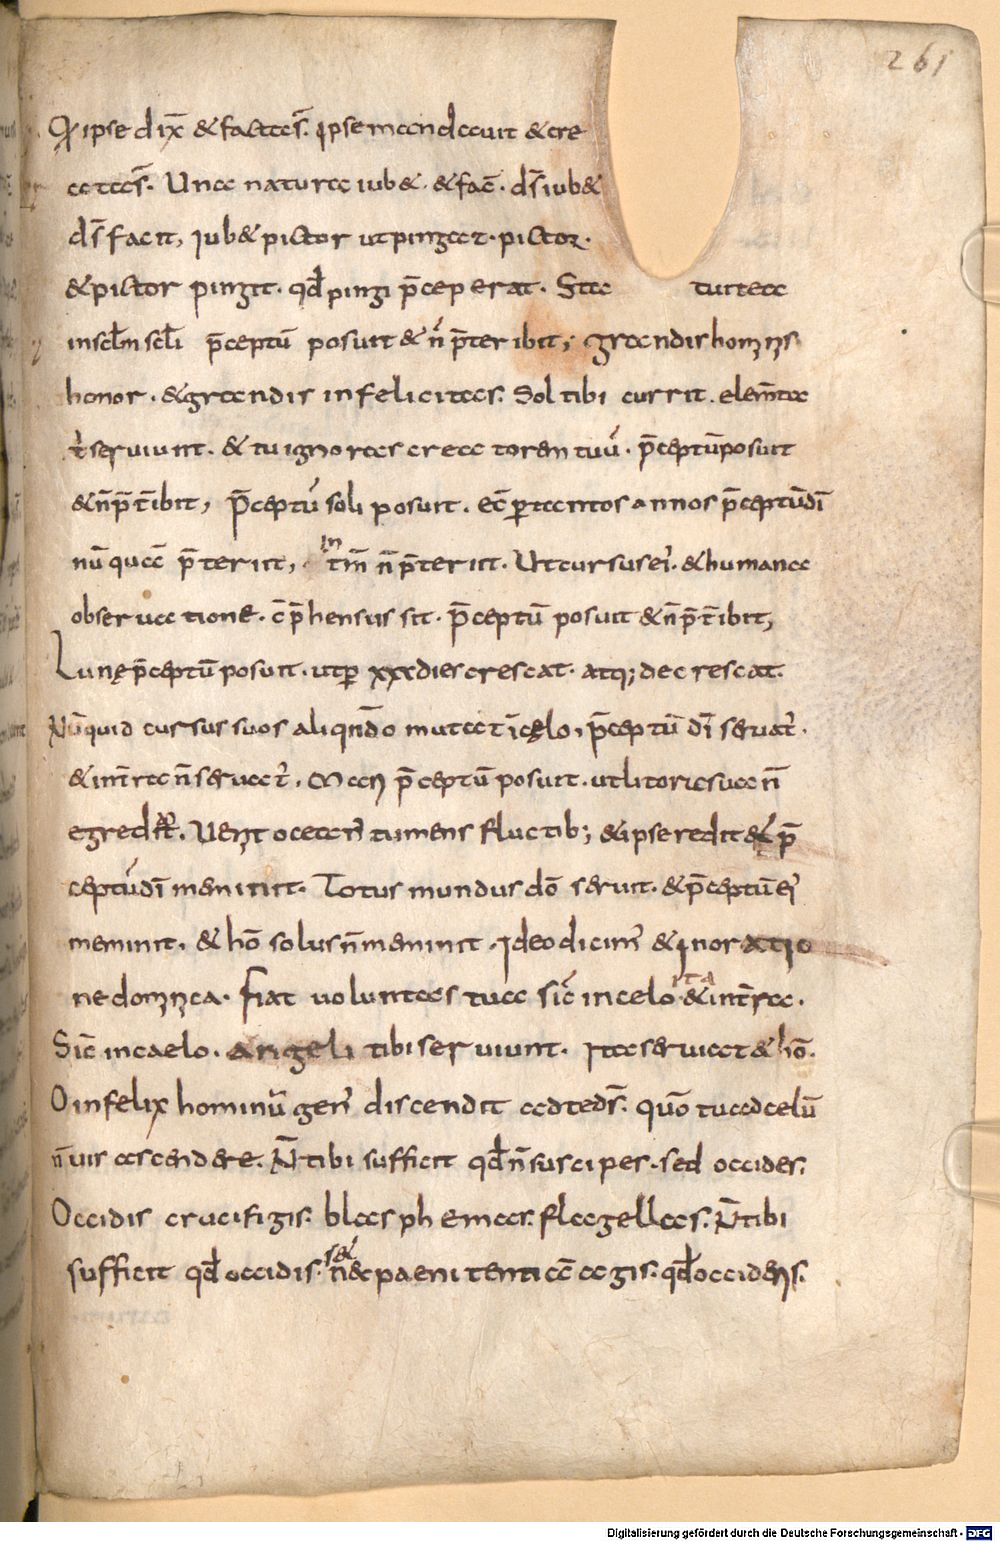 261
Q ipse dix̄ & facta s̄. ipse mandauit & cre
ata s̄. Una natura iub&. & fac̄. ds̄ iub&
ds̄ facit, iub& pictor ut pingat. pictor.
& pictor pingit. qd̄ pingi p̄ceperat. Sta tuit ea
in sclm̄ scl̄i p̄ceptū posuit & n̄ p̄teribit; grandis hominis
honor. & grandis infelicitas. Sol tibi currit. elem̄ta
t̄ seruiunt. & tu ignoras creatorem tuū. p̄ceptū posuit
& n̄ p̄t̄ibit, p̄ceptū soli posuit. ec̄ ꝑ tantos annos p̄ceptū dī
nūquā p̄teriit, in tm̄ n̄ p̄teriit. Ut cursus ei᾽. & humana
obseruatione. c̄p̄hensus sit. p̄ceptū posuit & n̄ p̄t̄ibit,
Lunę p̄ceptū posuit. ut ꝑ xxx dies crescat. atq; decrescat.
Nūquid cursus suos aliqn̄do mutat ī cęlo, p̄ceptū dī seruat᾽.
& in t̄ra n̄ seruat᾽. Mari p̄ceptū posuit. ut litora sua n̄
egredit᾽. Uenit oceanᷤ tumens fluctib; & ipse redit & p̄
ceptū dī meminit. Totus mundus dō seruit. & p̄ceptū ei᾽
meminit. & hō solus n̄ meminit. Ideo dicimᷤ & in oratio
ne dominica. fiat uoluntas tua sic̄ in celo ita & in t̄ra.
Sic̄ in caelo. angeli tibi seruiunt. ita seruiat & hō.
O infelix hominū genᷤ discendit ad te ds̄. quō tu ad celū
n̄ uis ascendere. N̄ tibi sufficit qd̄ n̄ suscipes. sed occides.
Occidis crucifigis. blasphemas. flagellas. N̄ tibi
sufficit qd̄ occidis. sed n̄ & paenitentiā agis. qd̄ occideris.
Digitalisierung gefördert durch die Deutsche Forschungsgemeinschaft - DFG